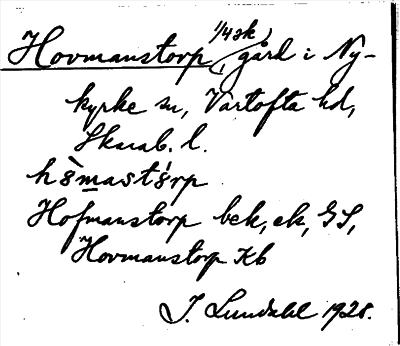 Hovmanstorp, 1/4 sk, gård i Ny-
kyrke sn, Vartofta hd,
Skarab. l.
hòmastórp
Hofmanstorp bek, ek, GS,
Hovmanstorp Kb
J. Lundahl 1928.